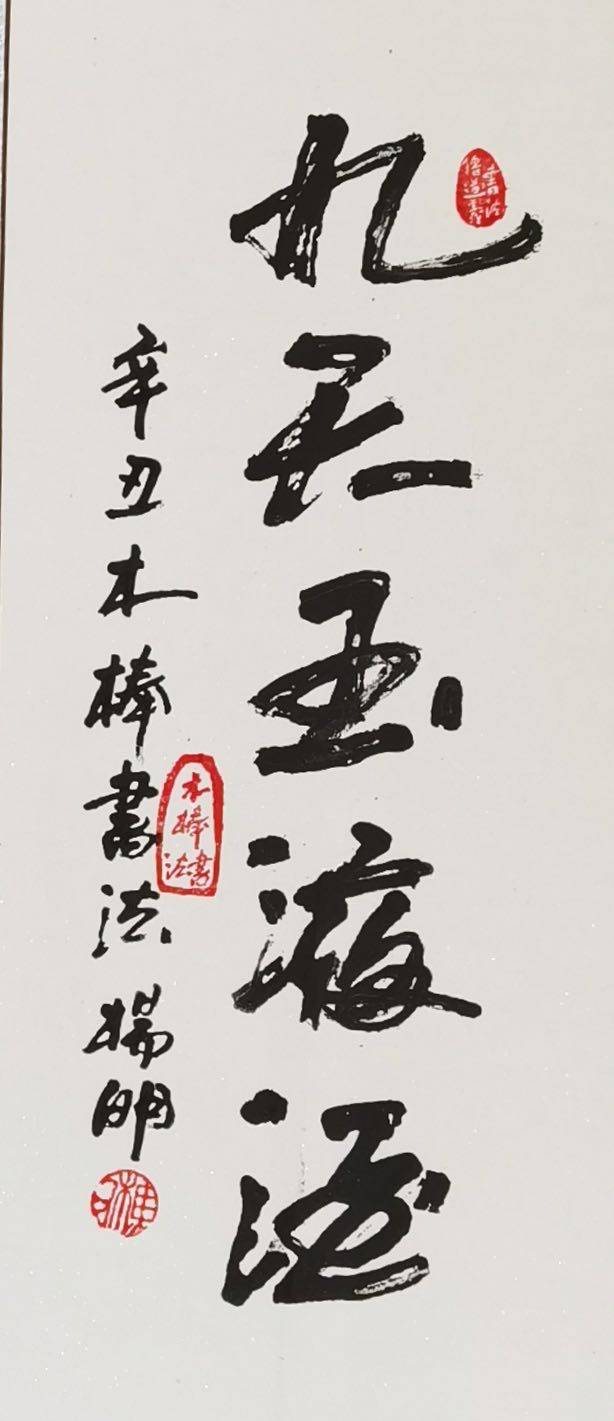 九天玉液酒
辛丑木棒書法楊明
木棒書法